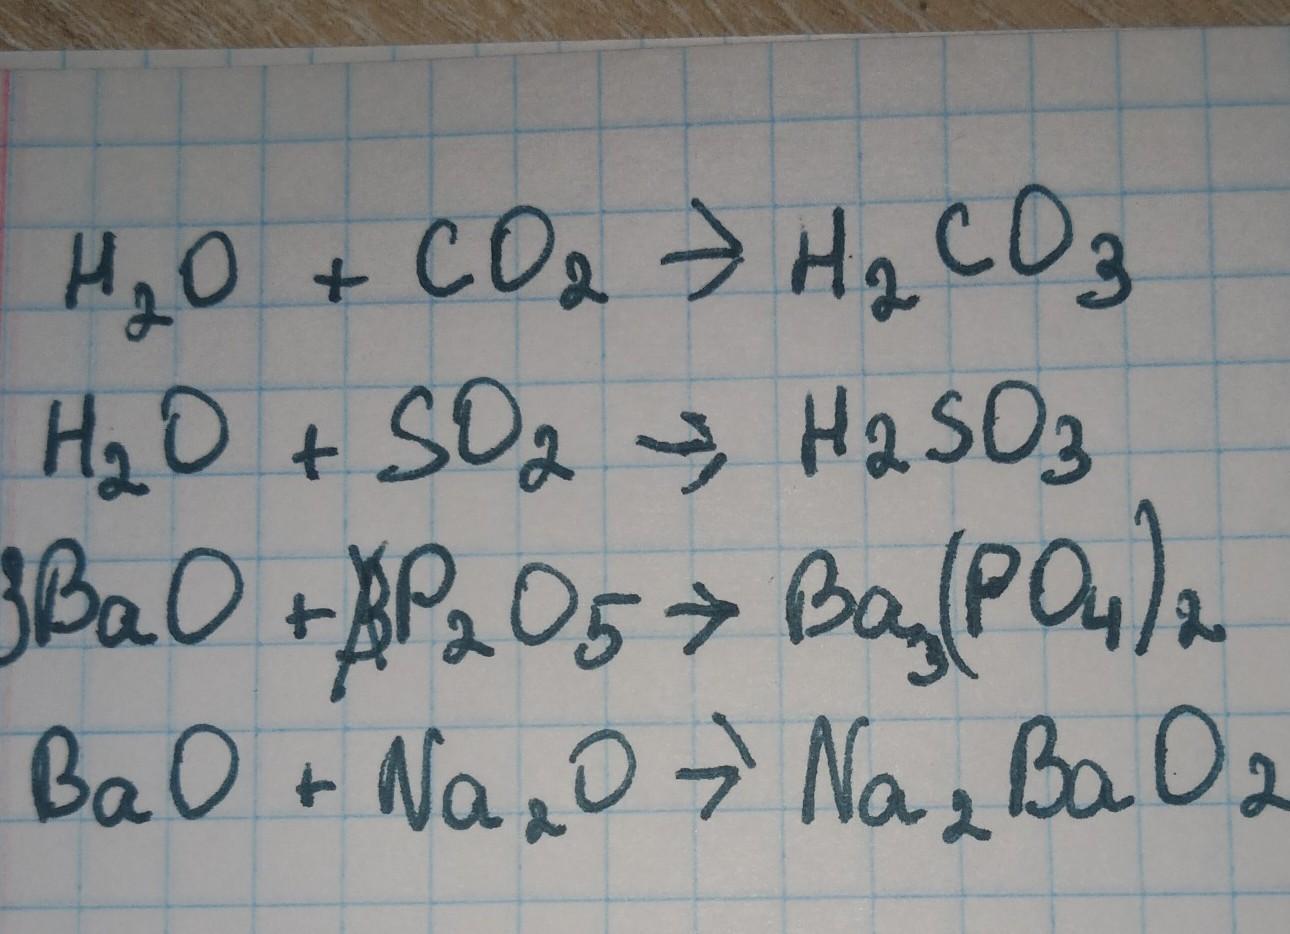 H₂O + CO₂ → H₂CO₃
H₂O + SO₂ → H₂SO₃
3BaO + P₂O₅ → Ba₃(PO₄)₂
BaO + Na₂O → Na₂BaO₂